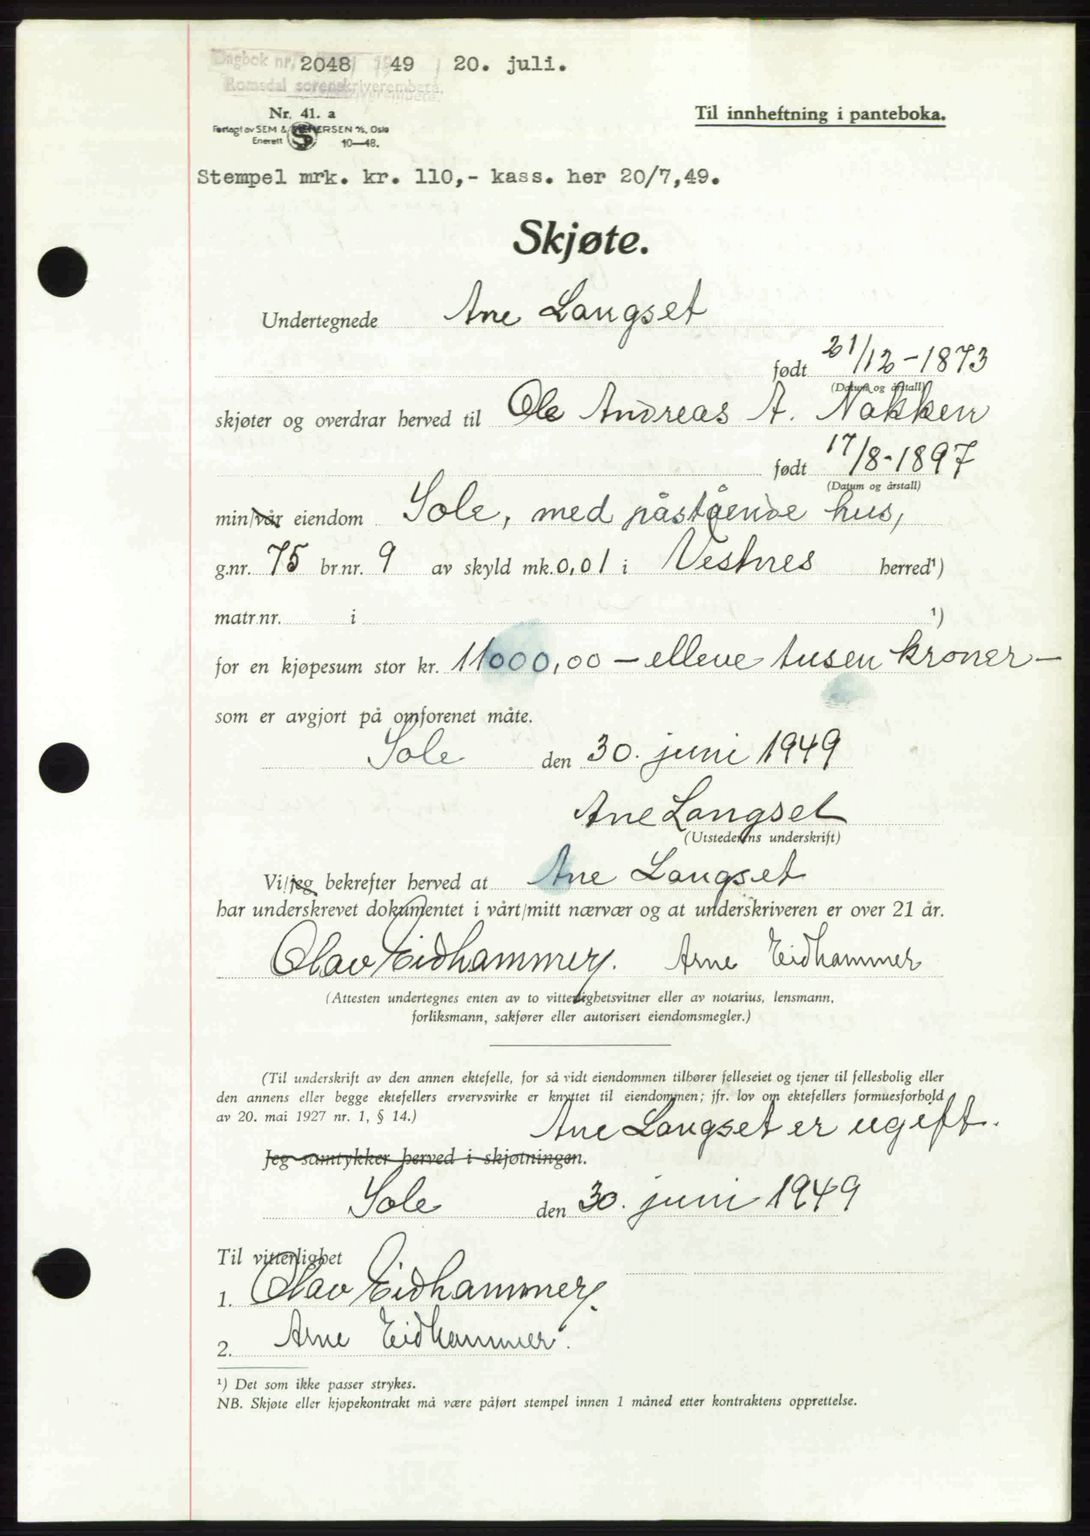 Dagbok nr. 2048 49 20. juli.
Romsdal sorenskriverembete.
Nr. 41. a
Til innheftning i panteboka.
Forlagt av SEM & STENERSEN A/S, Oslo
Enerett 10—48.
Stempel mrk. kr. 110,- kass. her 20/7,49.
Skjøte.
Undertegnede Ane Langset
født 21/12-1873
(Datum og årstall)
skjøter og overdrar herved til Ole Andreas A. Nakken
født 17/8-1897
(Datum og årstall)
min/vår eiendom Sole, med påstående hus,
g.nr. 75 br.nr. 9 av skyld mk. 0,01 i Vestnes herred¹)
matr.nr. i ¹)
for en kjøpesum stor kr. 11000,00 — elleve tusen kroner —
som er avgjort på omforenet måte.
Sole den 30. juni 1949
Ane Langset
(Utstederens underskrift)
Vi/jeg bekrefter herved at Ane Langset
har underskrevet dokumentet i vårt/mitt nærvær og at underskriveren er over 21 år.
Olav Eidhammer. Arne Eidhammer
(Attesten undertegnes enten av to vitterlighetsvitner eller av notarius, lensmann,
forliksmann, sakfører eller autorisert eiendomsmegler.)
(Til underskrift av den annen ektefelle, for så vidt eiendommen tilhører felleseiet og tjener til fellesbolig eller
den annens eller begge ektefellers ervervsvirke er knyttet til eiendommen; jfr. lov om ektefellers formuesforhold
av 20. mai 1927 nr. 1, § 14.)
Ane Langset er ugift.
Jeg samtykker herved i skjøtningen.
Sole den 30. juni 1949
Til vitterlighet
1. Olav Eidhammer.
2. Arne Eidhammer.
¹) Det som ikke passer strykes.
NB. Skjøte eller kjøpekontrakt må være påført stempel innen 1 måned etter kontraktens opprettelse.